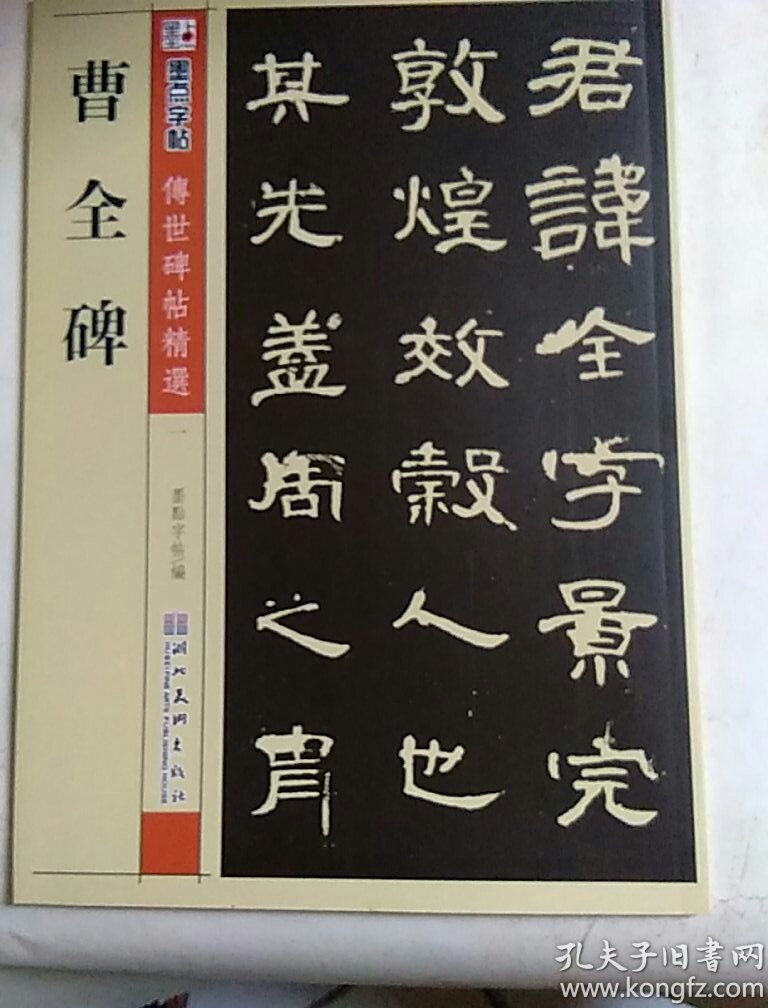 君諱全字景完
敦煌效穀人也
其先蓋周之胄
墨点字帖
傳世碑帖精選
一
墨點字帖/編
湖北美术出版社
HUBEI FINE ARTS PUBLISHING HOUSE
曹全碑
孔夫子旧书网
www.kongfz.com